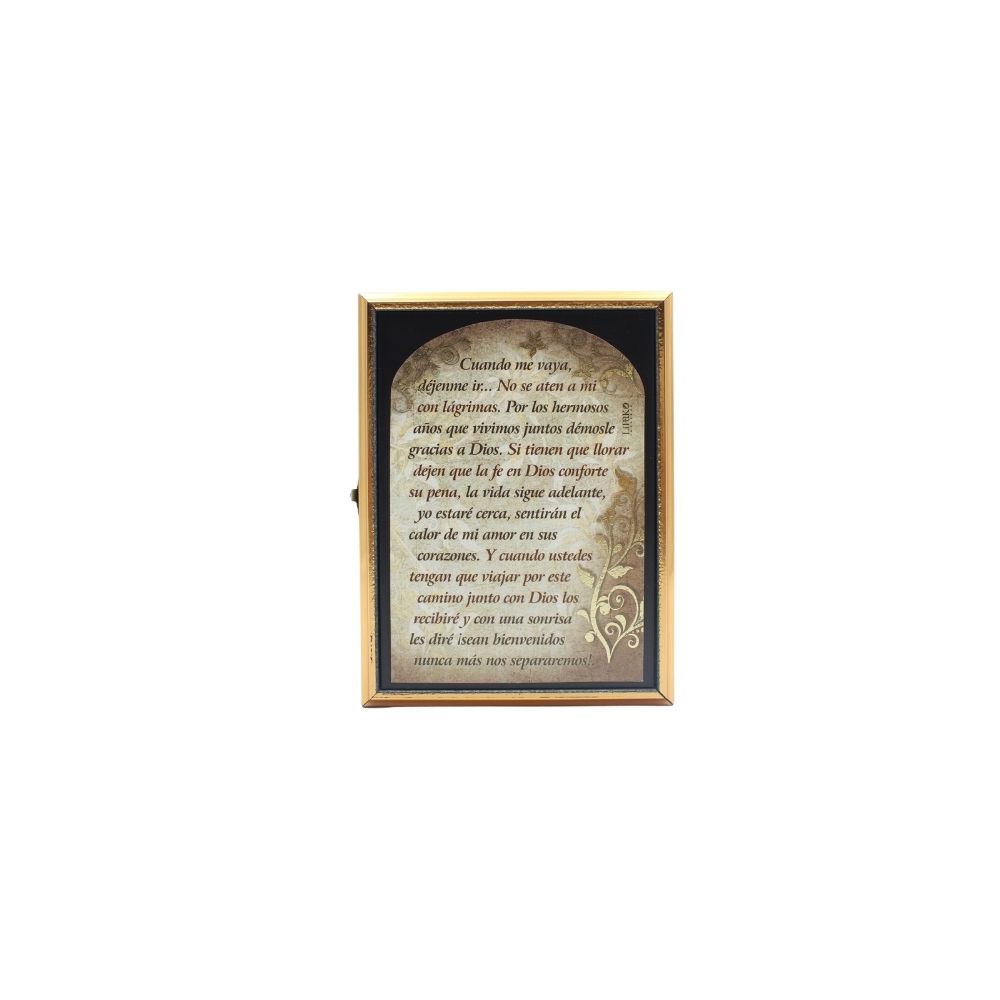 Cuando me vaya,
déjenme ir... No se aten a mi
con lágrimas. Por los hermosos
años que vivimos juntos démosle
gracias a Dios. Si tienen que llorar
dejen que la fe en Dios conforte
su pena, la vida sigue adelante,
yo estaré cerca, sentirán el
calor de mi amor en sus
corazones. Y cuando ustedes
tengan que viajar por este
camino junto con Dios los
recibiré y con una sonrisa
les diré ¡sean bienvenidos
nunca más nos separaremos!